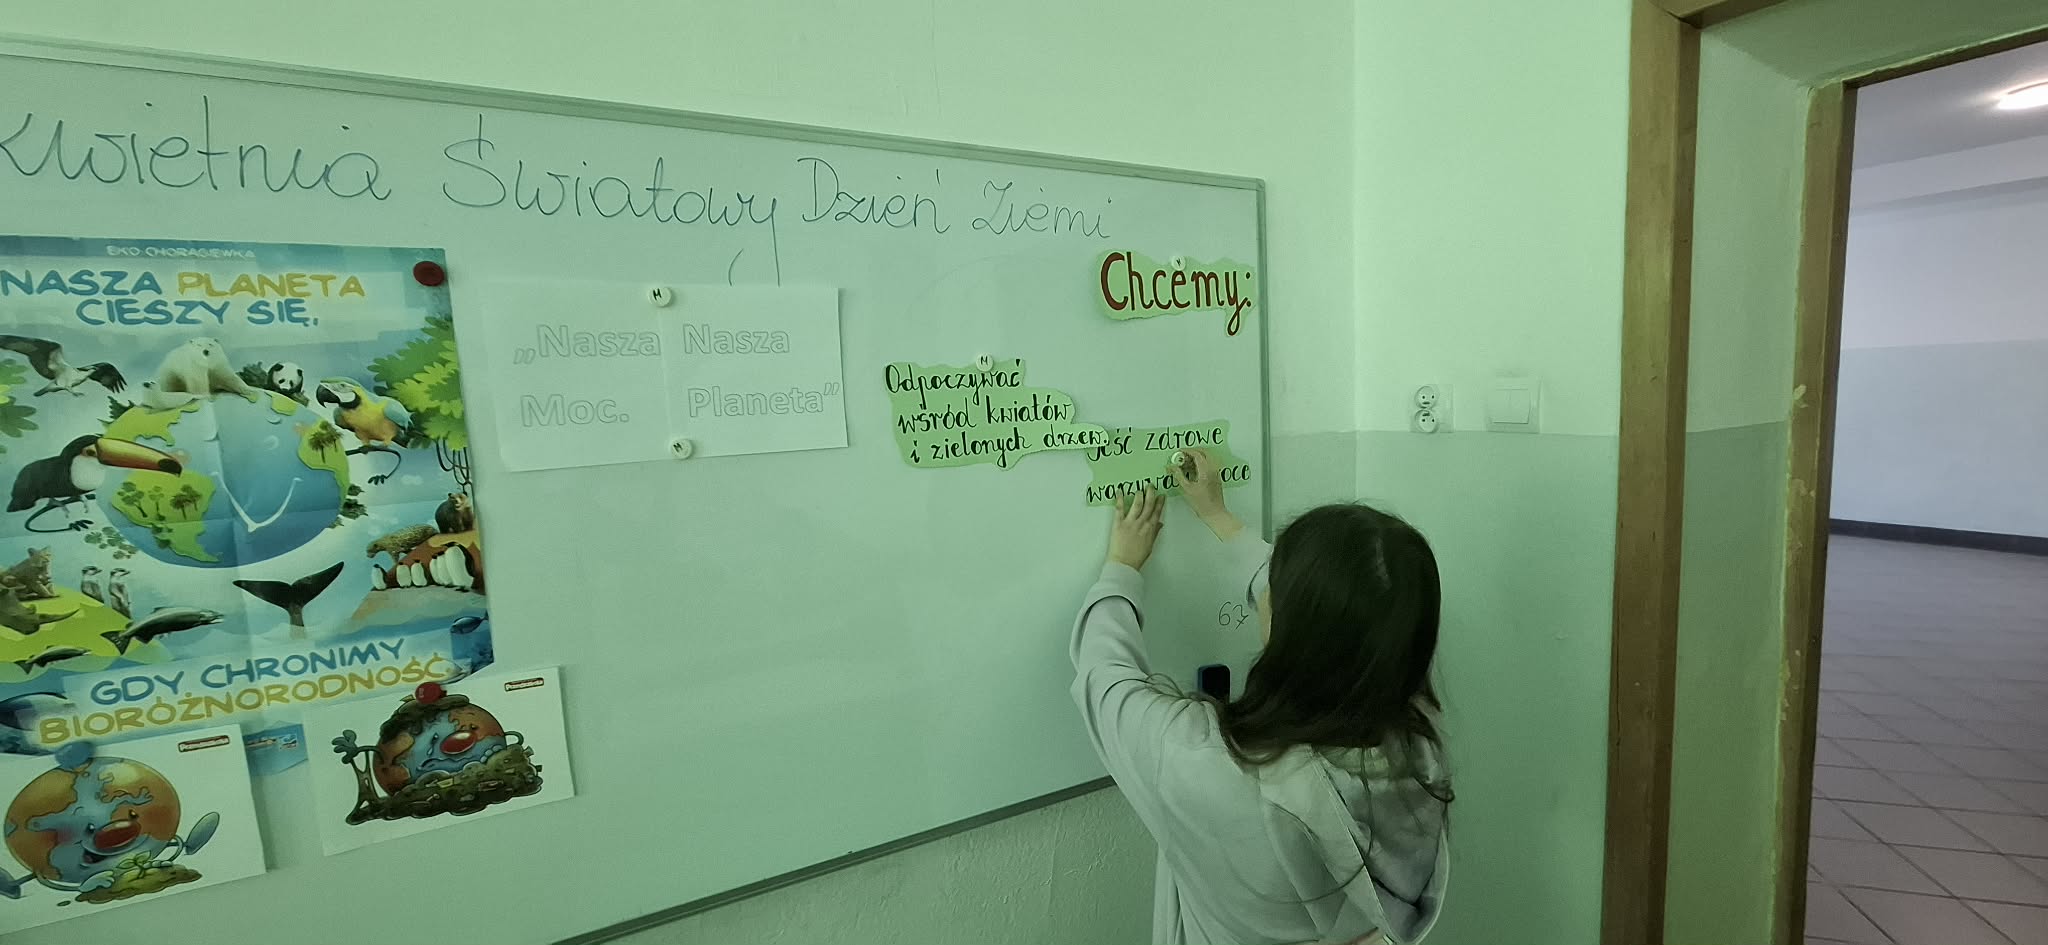 kwietnia Światowy Dzień Ziemi
EKO CHORĄGIEWKA
NASZA PLANETA
CIESZY SIĘ,
GDY CHRONIMY
BIORÓŻNORODNOŚĆ
„Nasza Nasza
Moc. Planeta”
Chcemy:
Odpoczywać
wśród kwiatów
i zielonych drzew.
jeść zdrowe
warzywa
67